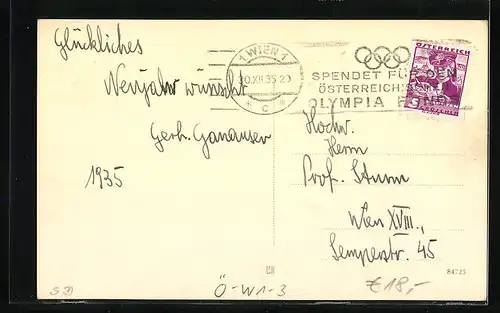 Glückliches
Neujahr wünscht
Gerh. Ganauser
1935
1 WIEN 1
30.XII.35 20
* C *
SPENDET FÜR DEN
ÖSTERREICHISCHEN
OLYMPIA FOND
ÖSTERREICH
Hochw.
Herrn
Prof. Sturm
Wien XVIII.,
Semperstr. 45
84725
Ö-W1-3
€18,-